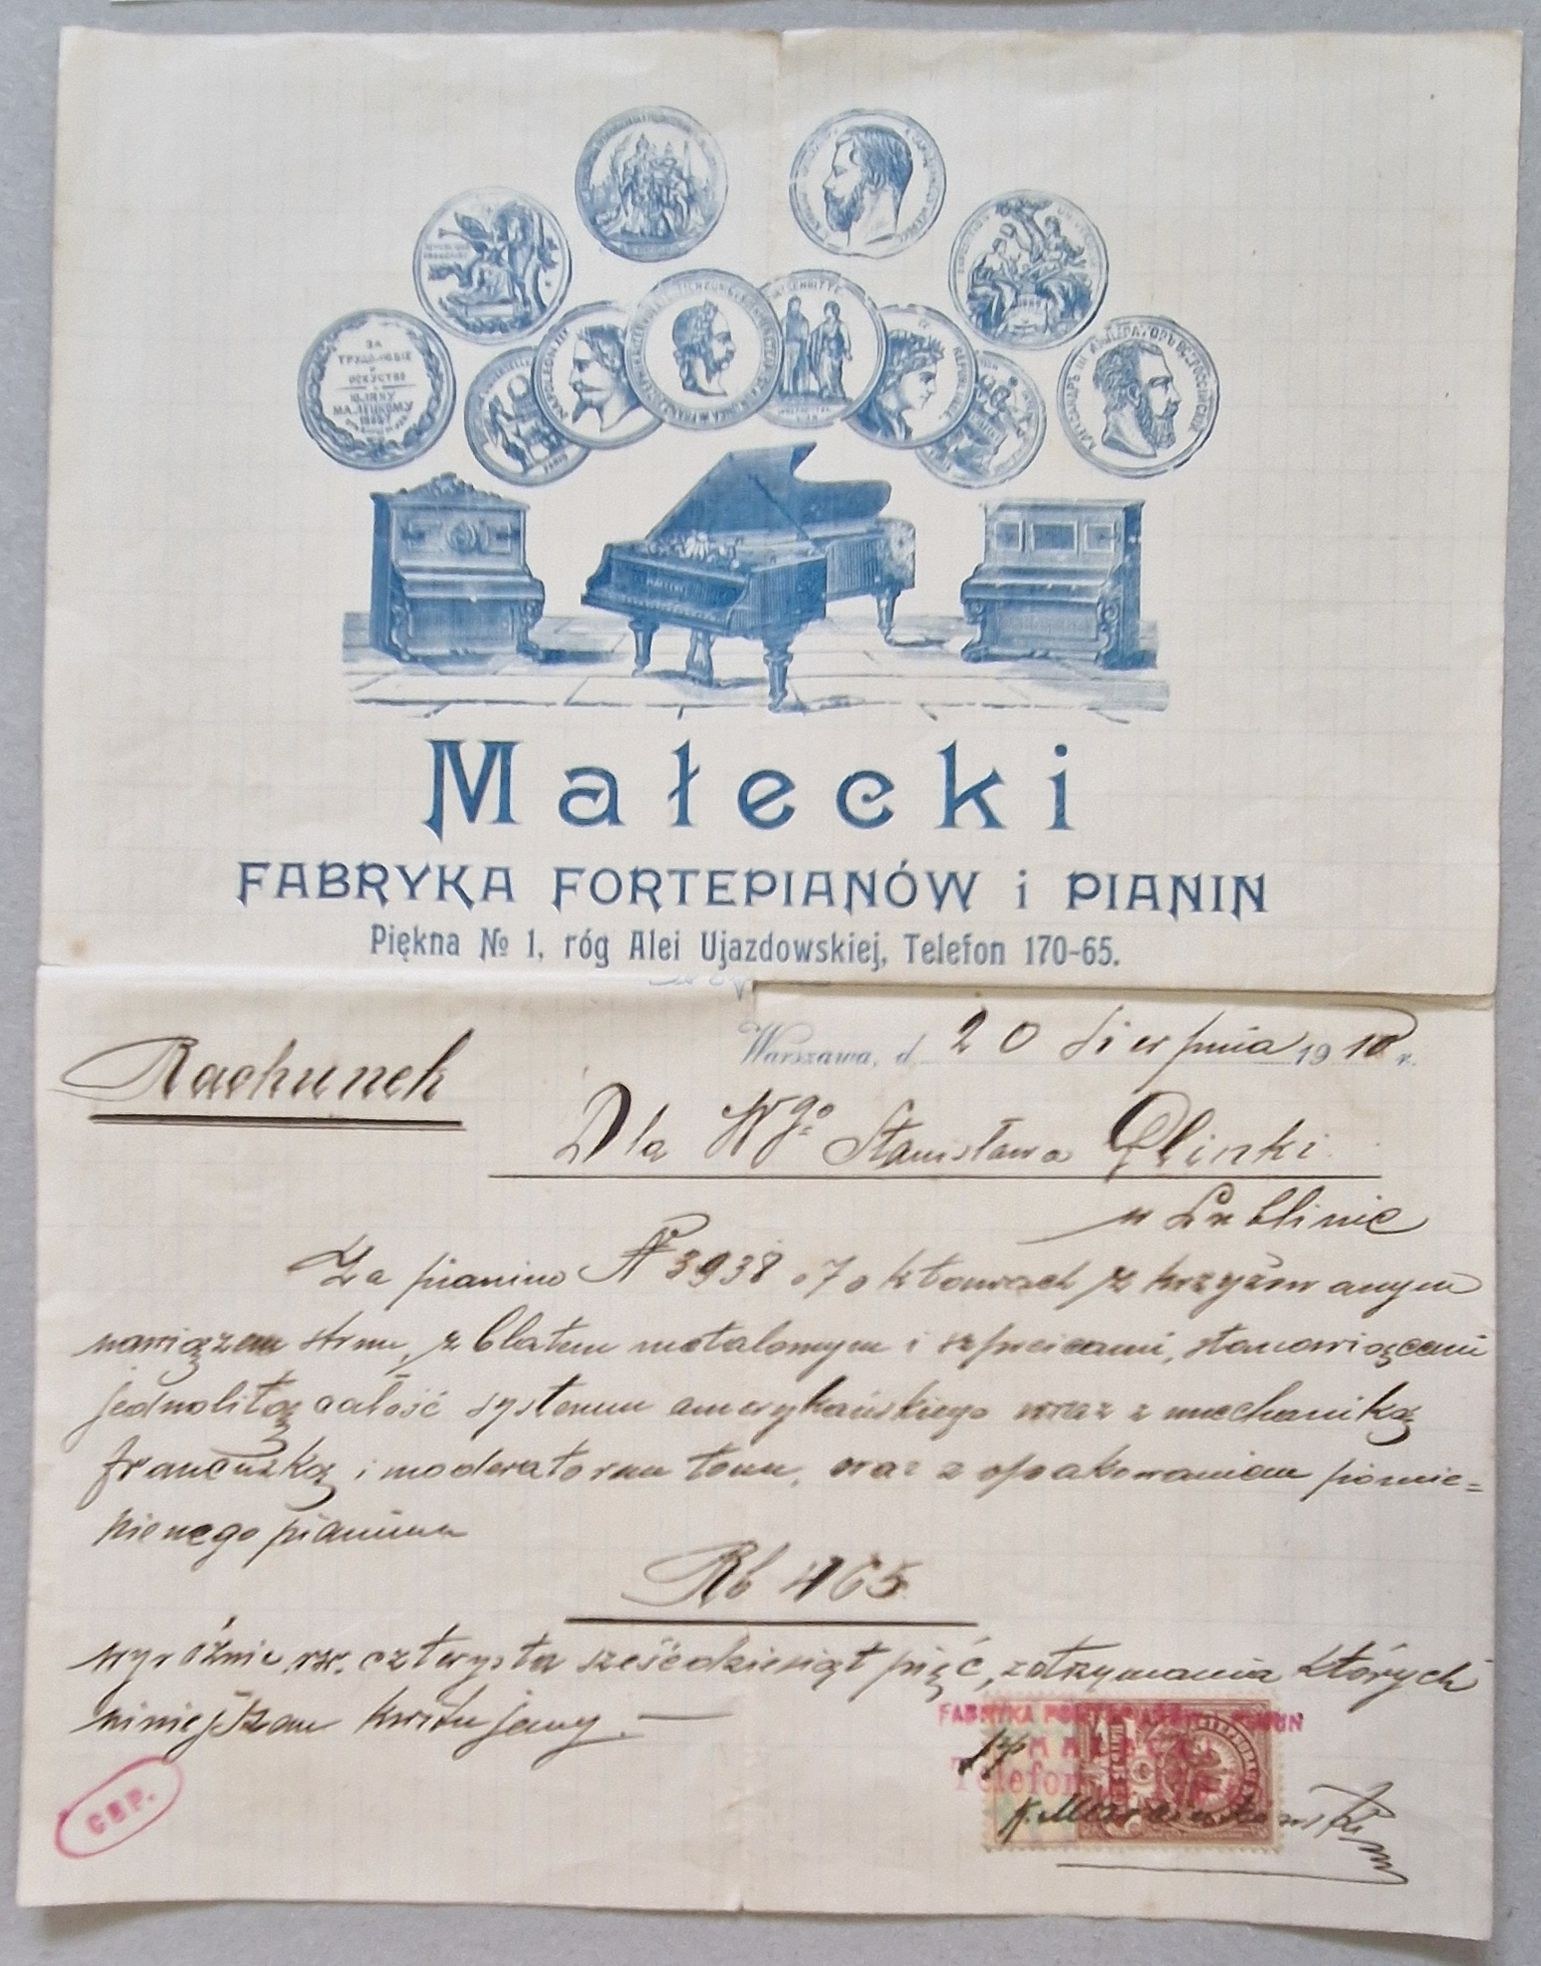 ЗА
ТРУДОЛЮБІЕ
И
ИСКУСТВО
NAPOLEON III
REPUBLIQUE
PARIS
Małecki
FABRYKA FORTEPIANÓW i PIANIN
Piękna № 1, róg Alei Ujazdowskiej, Telefon 170-65.
Warszawa, d. 20 Sierpnia 1910 r.
Rachunek
Dla Wgo Stanisława Glinki
w Lublinie
Za pianino № 3938 o 7 oktawach z krzyżowanym
nawiązem strun, z blatem metalowym i szpreicami, stanowiącemi
jednolitą całość systemu amerykańskiego wraz z mechaniką
francuską i moderatorem tonu, oraz z opakowaniem pomie=
nionego pianina
Rb 465
wyróżnie rs. czterysta sześćdziesiąt pięć, z otrzymania których
niniejszem kwitujemy. —
FABRYKA FORTEPIANÓW i PIANIN
MAŁECKI
Telefon
CBP.